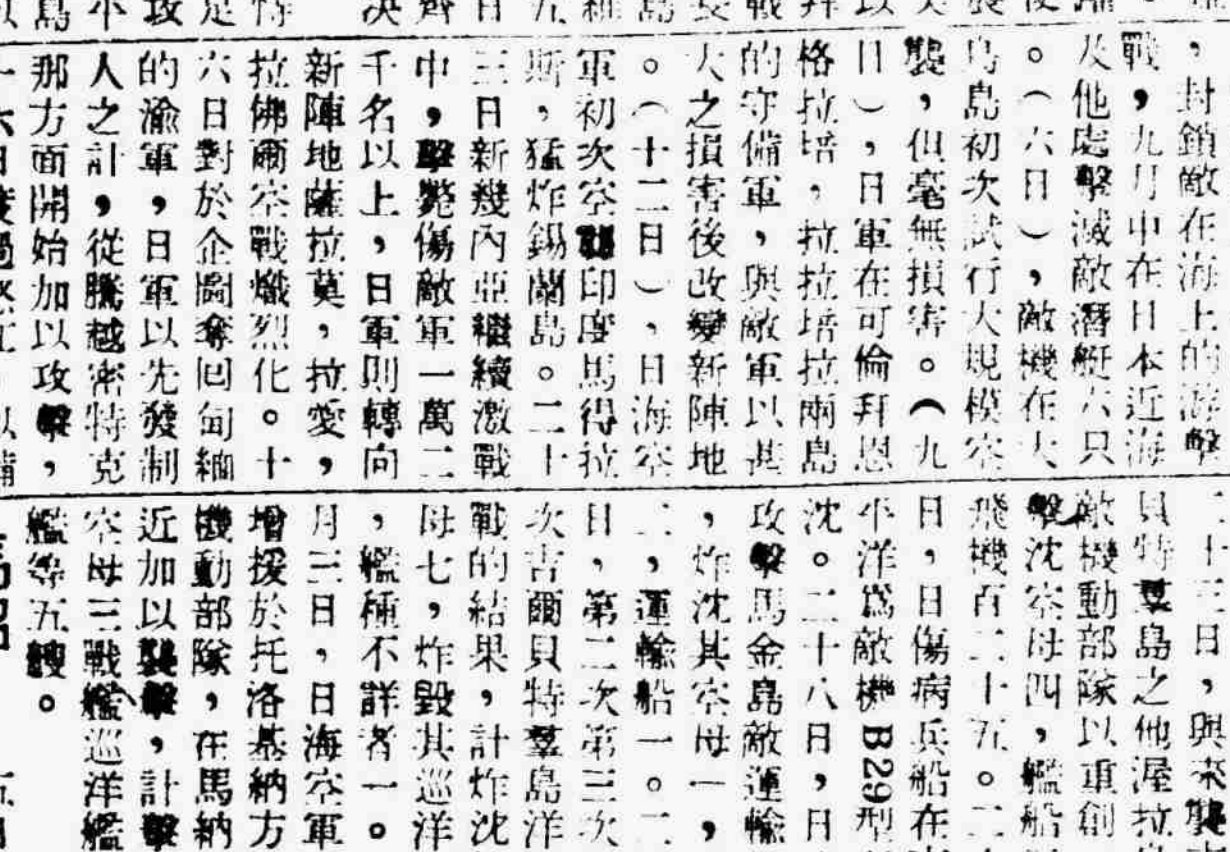 ，封鎖敵在海上的游擊
戰，九月中在日本近海
及他處擊滅敵潛艇六只
。（六日），敵機在大
鳥島初次試行大規模空
襲，但毫無損害。（九
日），日軍在可倫拜恩
格拉培，拉拉培拉兩島
的守備軍，與敵軍以甚
大之損害後改變新陣地
。（十二日），日海空
軍初次空襲印度馬得拉
斯，猛炸錫蘭島。二十
三日新幾內亞繼續激戰
中，擊斃傷敵軍一萬二
千名以上，日軍則轉向
新陣地薩拉莫，拉愛，
拉佛爾空戰熾烈化。十
六日對於企圖奪回甸緬
的渝軍，日軍以先發制
人之計，從騰越密特克
那方面開始加以攻擊，
二十三日，與來襲
貝特羣島之他渥拉
敵機動部隊以重創
擊沈空母四，艦船
飛機百二十五。二
日，日傷病兵船在
平洋爲敵機B29型
沈。二十八日，日
攻擊馬金島敵運輸
，炸沈其空母一，
二，運輸船一。二
日，第二次第三次
次吉爾貝特羣島洋
戰的結果，計炸沈
母七，炸毀其巡洋
，艦種不詳者一。
月三日，日海空軍
增援於托洛基納方
機動部隊，在馬納
近加以襲擊，計擊
空母三戰艦巡洋艦
艦等五艘。